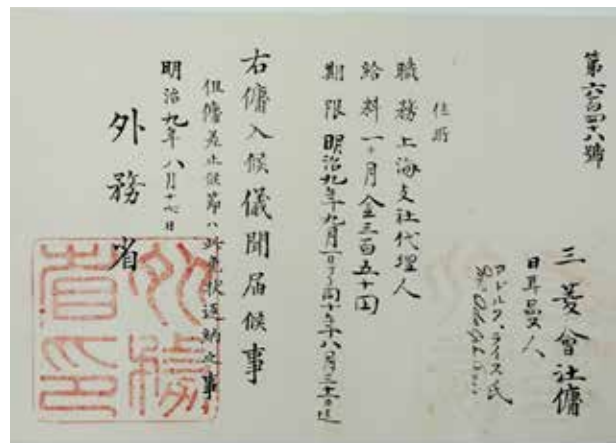 第六百四十六號
三菱會社傭
日耳曼人
アドルフ、ライス氏
住所
職務 上海支社代理人
給料 一ヶ月金三百五十円
期限 明治九年九月一日ヨリ同十年八月三十一日迄
右傭入候儀聞届候事
但傭差止候節ハ此免狀返納之事
明治九年八月十七日
外務省
外務省印